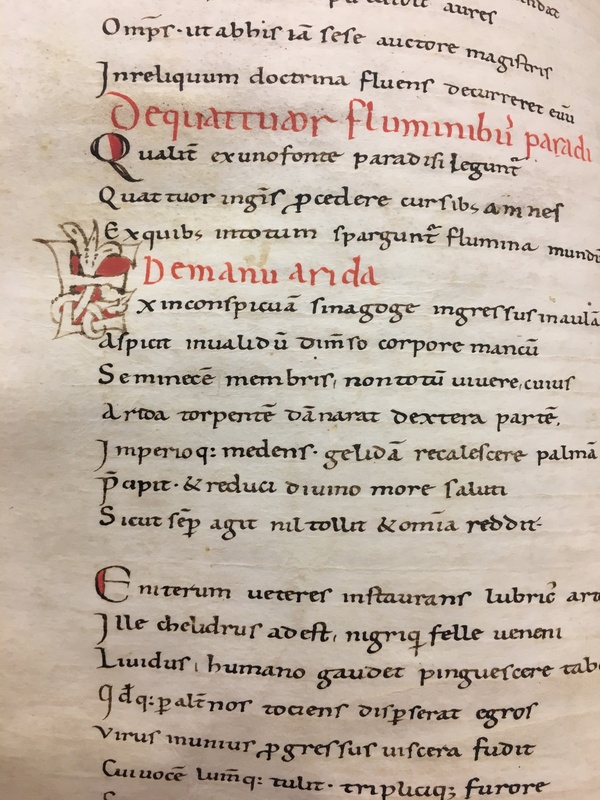 aures
Omp̄s· ut abhis iā sese auctore magistris
Inreliquum doctrina fluens decurreret euū
Dequattuor fluminibū paradi
Qualit̄ exunofonte paradisi legunt̄
Quattuor ingīs p̄cedere cursib; amnes
Exquib; intotum spargunt̄ flumina mundū
Demanu arida
Exinconspicuā sinagoge ingressus inaulā
Aspicit inualidū dim̄so corpore mancū
Seminecē membris, nontotū uiuere, cuius
Arida torpentē dānarat dextera partē.
Imperioq: medens· gelidā recalescere palmā
p̄cipit· & reduci diuino more saluti
Sicut sēp agit nil tollit & omīa reddit·
Eniterum ueteres instaurans lubric̄ art
Ille chelidrus adest, nigriq felle ueneni
Liuidus, humano gaudet pinguescere tabo
qd̄q: p alt̄nos tociens disp̄serat egros
Virus inunius p̄gressus uiscera fudit
Cuiuocē lum̄q: tulit· tripliciq; furore